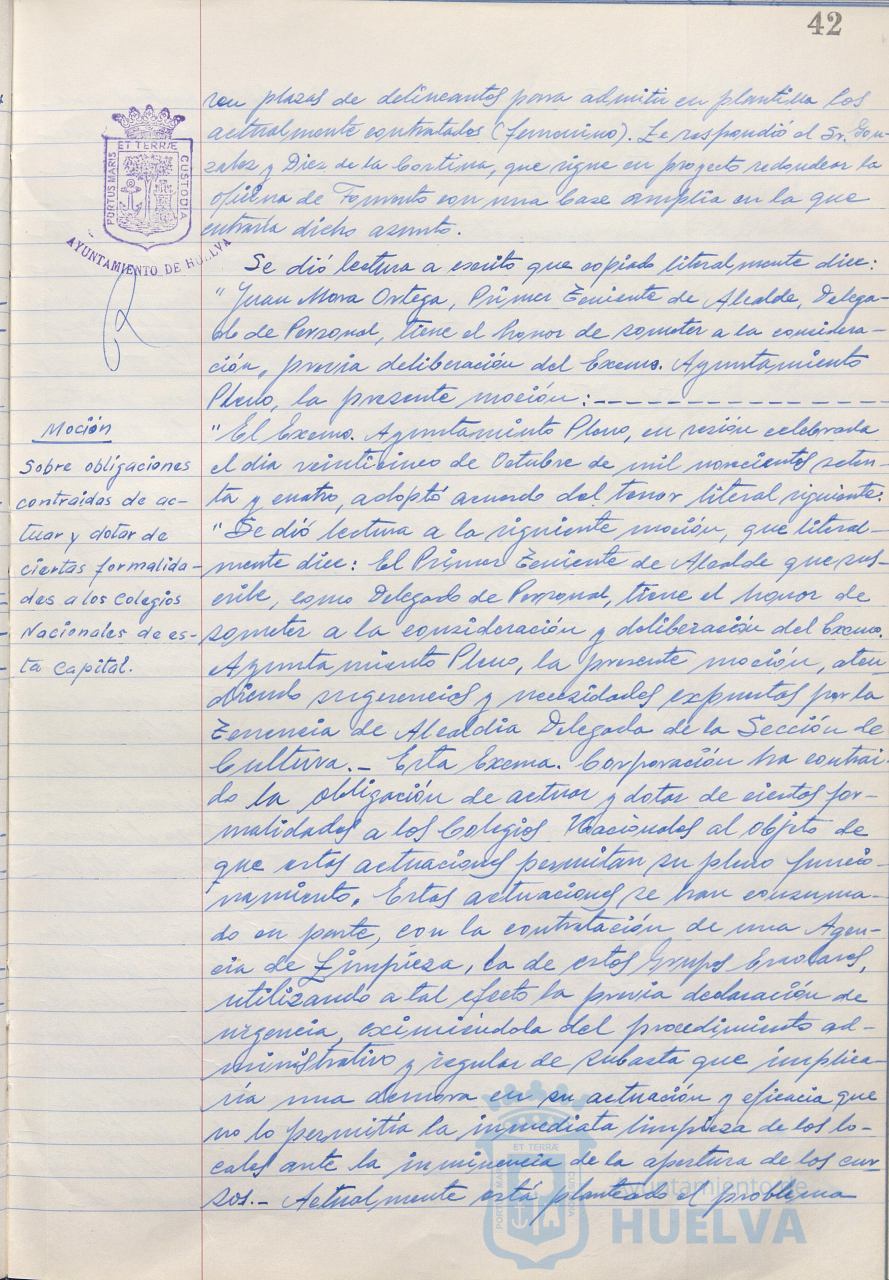 42
ran plazas de delineantes para admitir en plantilla los
actualmente contratados (femenino). Le respondió el Sr. Gon-
zalez y Diez de la Cortina, que sigue en proyecto redondear la
oficina de Fomento con una base amplia en la que
entraría dicho asunto.
Se dió lectura a escrito que copiado literalmente dice:
"Juan Mora Ortega, Primer Teniente de Alcalde, Delega-
do de Personal, tiene el honor de someter a la considera-
ción, previa deliberación del Excmo. Ayuntamiento
Pleno, la presente moción:
"El Excmo. Ayuntamiento Pleno, en sesión celebrada
el dia veinticinco de Octubre de mil novecientos seten-
ta y cuatro, adoptó acuerdo del tenor literal siguiente:
"Se dió lectura a la siguiente moción, que literal-
mente dice: El Primer Teniente de Alcalde que sus-
cribe, como Delegado de Personal, tiene el honor de
someter a la consideración y deliberación del Excmo.
Ayuntamiento Pleno, la presente moción, aten-
diendo sugerencias y necesidades expuestas por la
Tenencia de Alcaldia Delegada de la Sección de
Cultura.- Esta Excma. Corporación ha contrai-
do la obligación de actuar y dotar de ciertas for-
malidades a los Colegios Nacionales al objeto de
que estas actuaciones permitan su pleno funcio-
namiento. Estas actuaciones se han consuma-
do en parte, con la contratación de una Agen-
cia de Limpieza, la de estos Grupos Escolares,
utilizando a tal efecto la previa declaración de
urgencia, eximiéndola del procedimiento ad-
ministrativo y regular de subasta que implica-
ría una demora en su actuación y eficacia que
no lo permitía la inmediata limpieza de los lo-
cales ante la inminencia de la apertura de los cur-
sos.- Actualmente está planteado el problema
Moción
Sobre obligaciones
contraidas de ac-
tuar y dotar de
ciertas formalida-
des a los Colegios
Nacionales de es-
ta Capital.
ET TERRÆ
PORTUS MARIS
CUSTODIA
AYUNTAMIENTO DE HUELVA
ET TERRÆ
PORTUS MARIS
CUSTODIA
Ayuntamiento de
HUELVA